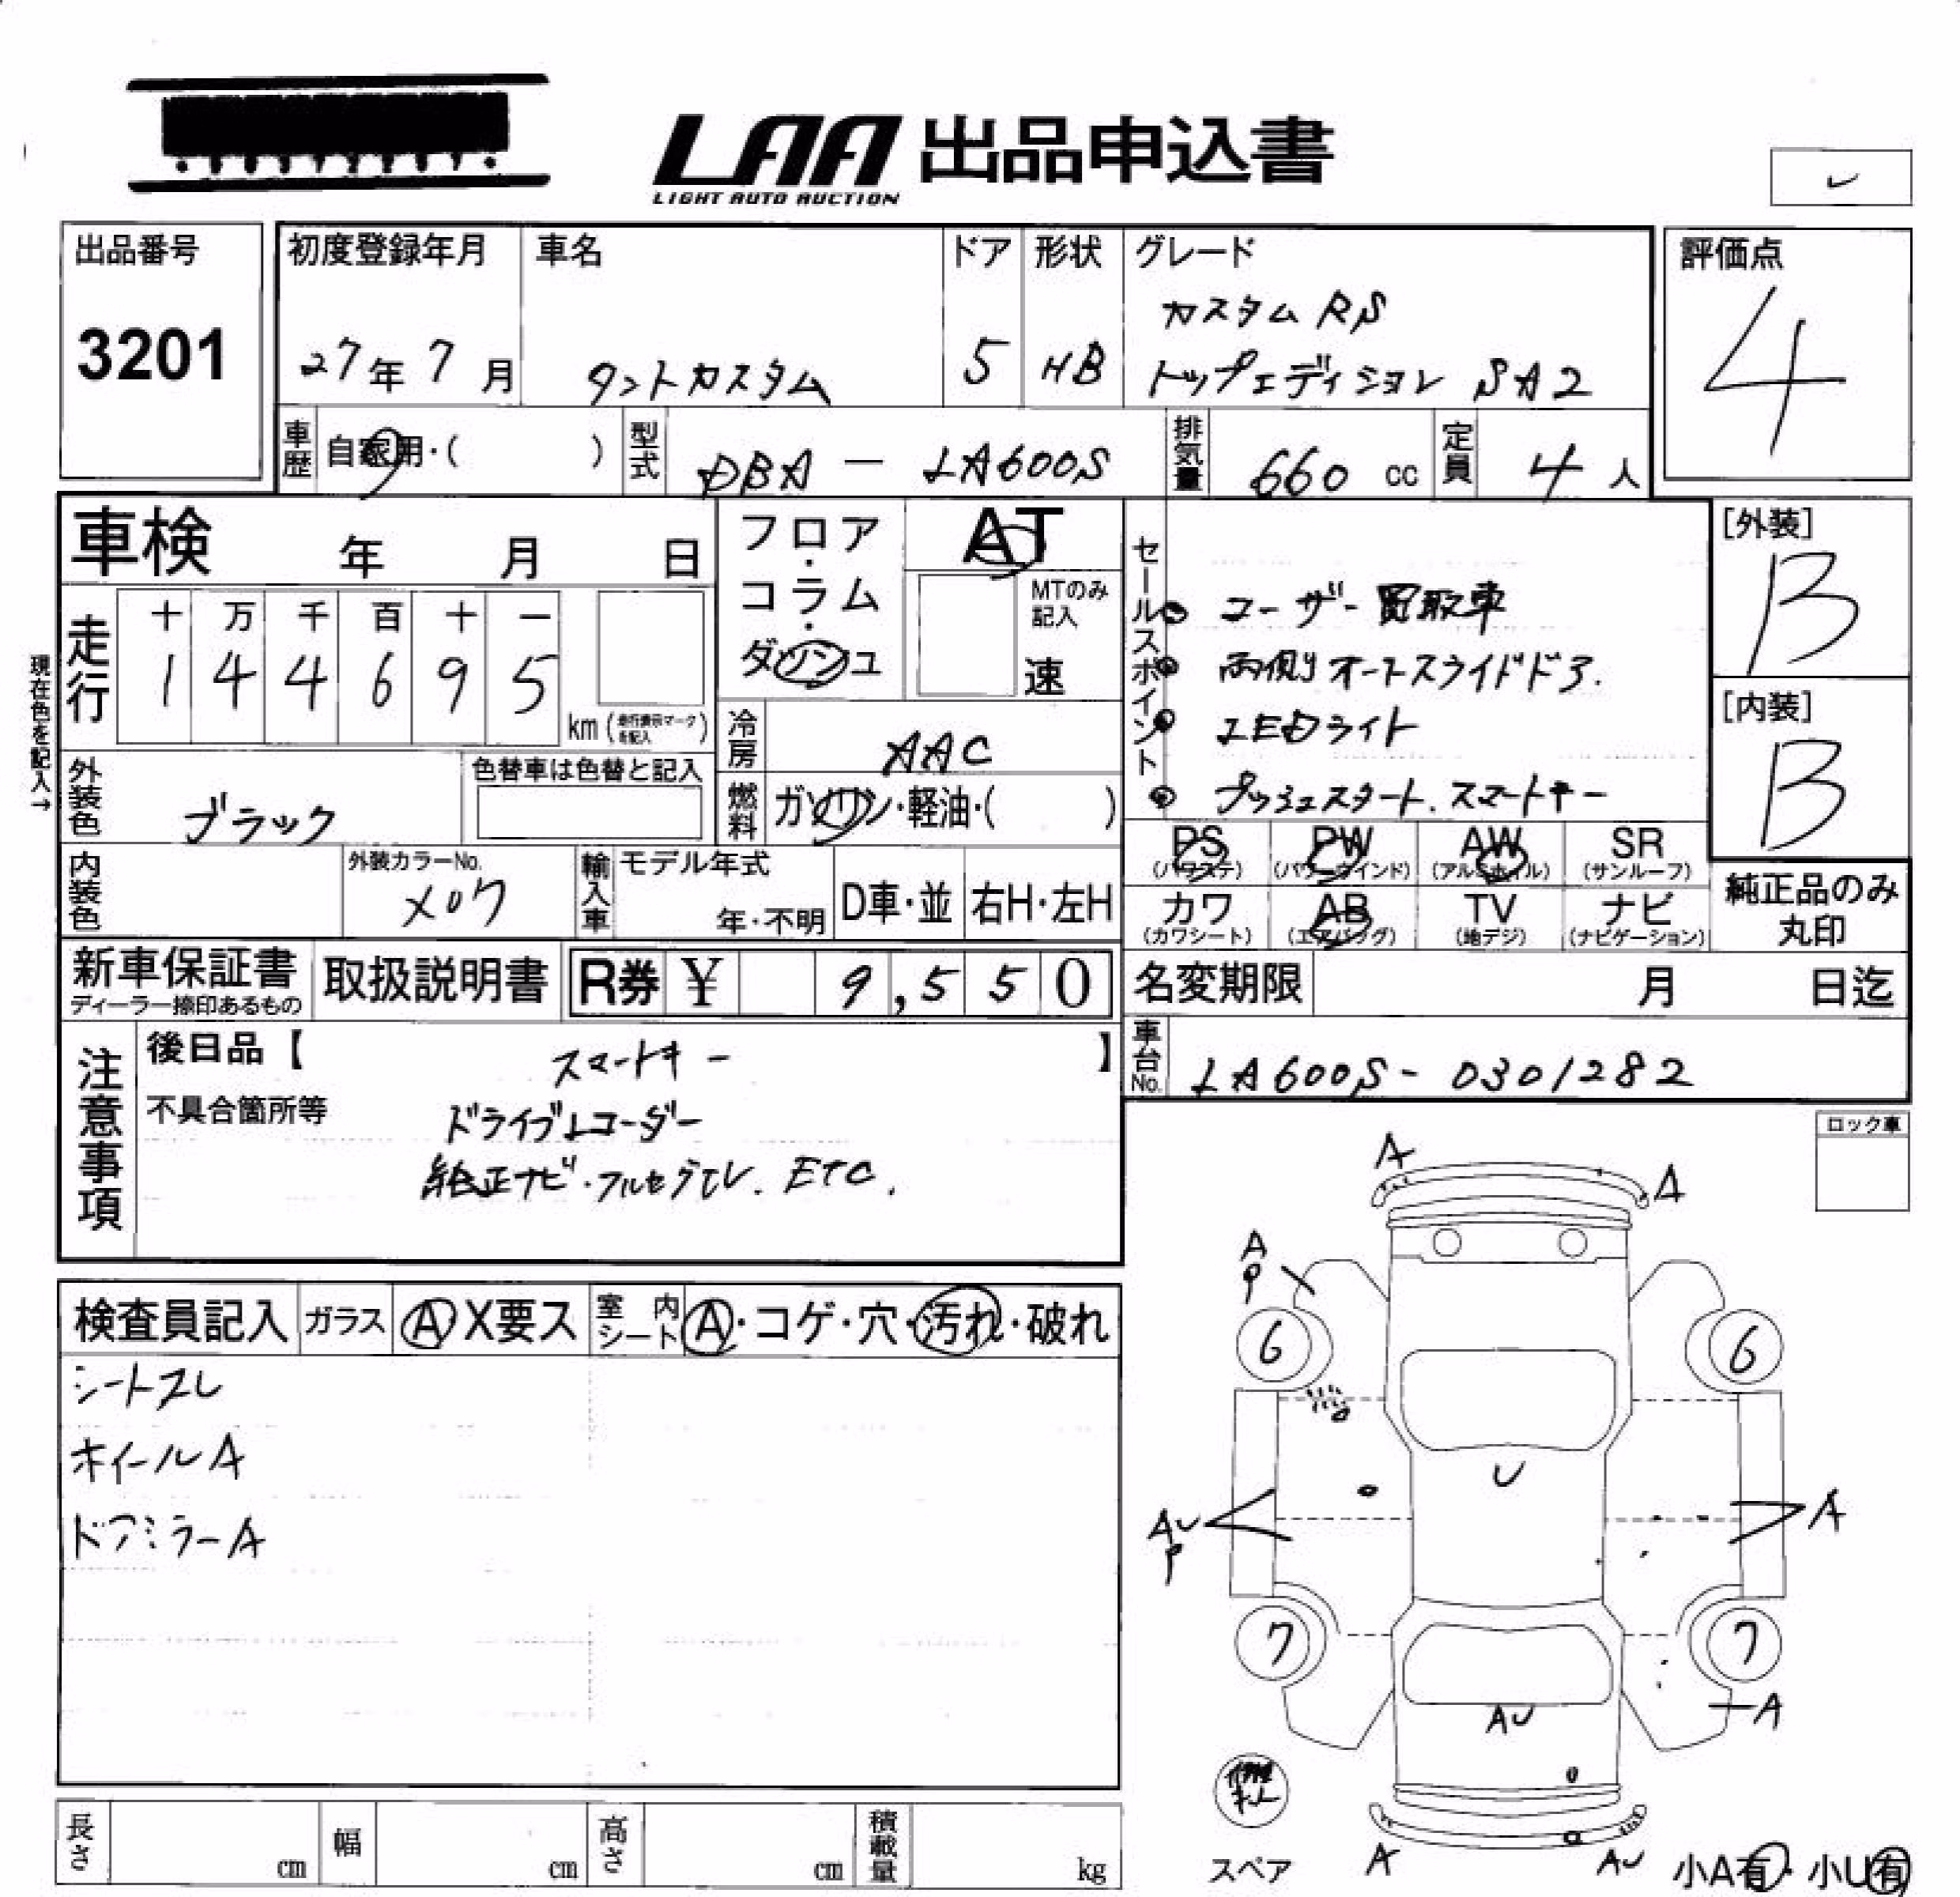 LAA 出品申込書
LIGHT AUTO AUCTION
出品番号
3201
初度登録年月
27年 7月
車名
タントカスタム
ドア
5
形状
HB
グレード
カスタム RS
トップエディション SA2
評価点
4
車歴
自家用・( )
型式
DBA - LA600S
排気量
660 cc
定員
4 人
車検 年 月 日
フロア・コラム・ダッシュ
AT
MTのみ記入
速
現在色を記入→
走行
十 万 千 百 十 一
1 4 4 6 9 5
km (走行表示マークを記入)
冷房
AAC
外装色
ブラック
色替車は色替と記入
燃料
ガソリン・軽油・( )
内装色
外装カラーNo.
X07
輸入車
モデル年式
年・不明
D車・並
右H・左H
新車保証書
ディーラー捺印あるもの
取扱説明書
R券 ¥ 9,550
セールスポイント
ユーザー買取車
両側オートスライドドア.
LEDライト
プッシュスタート.スマートキー
[外装]
B
[内装]
B
PS
(パワステ)
PW
(パワーウインド)
AW
(アルミホイル)
SR
(サンルーフ)
カワ
(カワシート)
AB
(エアバッグ)
TV
(地デジ)
ナビ
(ナビゲーション)
純正品のみ
丸印
名変期限 月 日迄
車台No.
LA600S - 0301282
注意事項
後日品【 スマートキー 】
不具合箇所等
ドライブレコーダー
純正ナビ・フルセグTV. ETC.
ロック車
検査員記入
ガラス
A X要ス
室内シート
A・コゲ・穴・汚れ・破れ
シートスレ
ホイールA
ドアミラーA
A
A
A
P
6
6
U
AU
P
A
7
7
A
AU
スペア
A
AU
小A有・小U有
長さ cm
幅 cm
高さ cm
積載量 kg